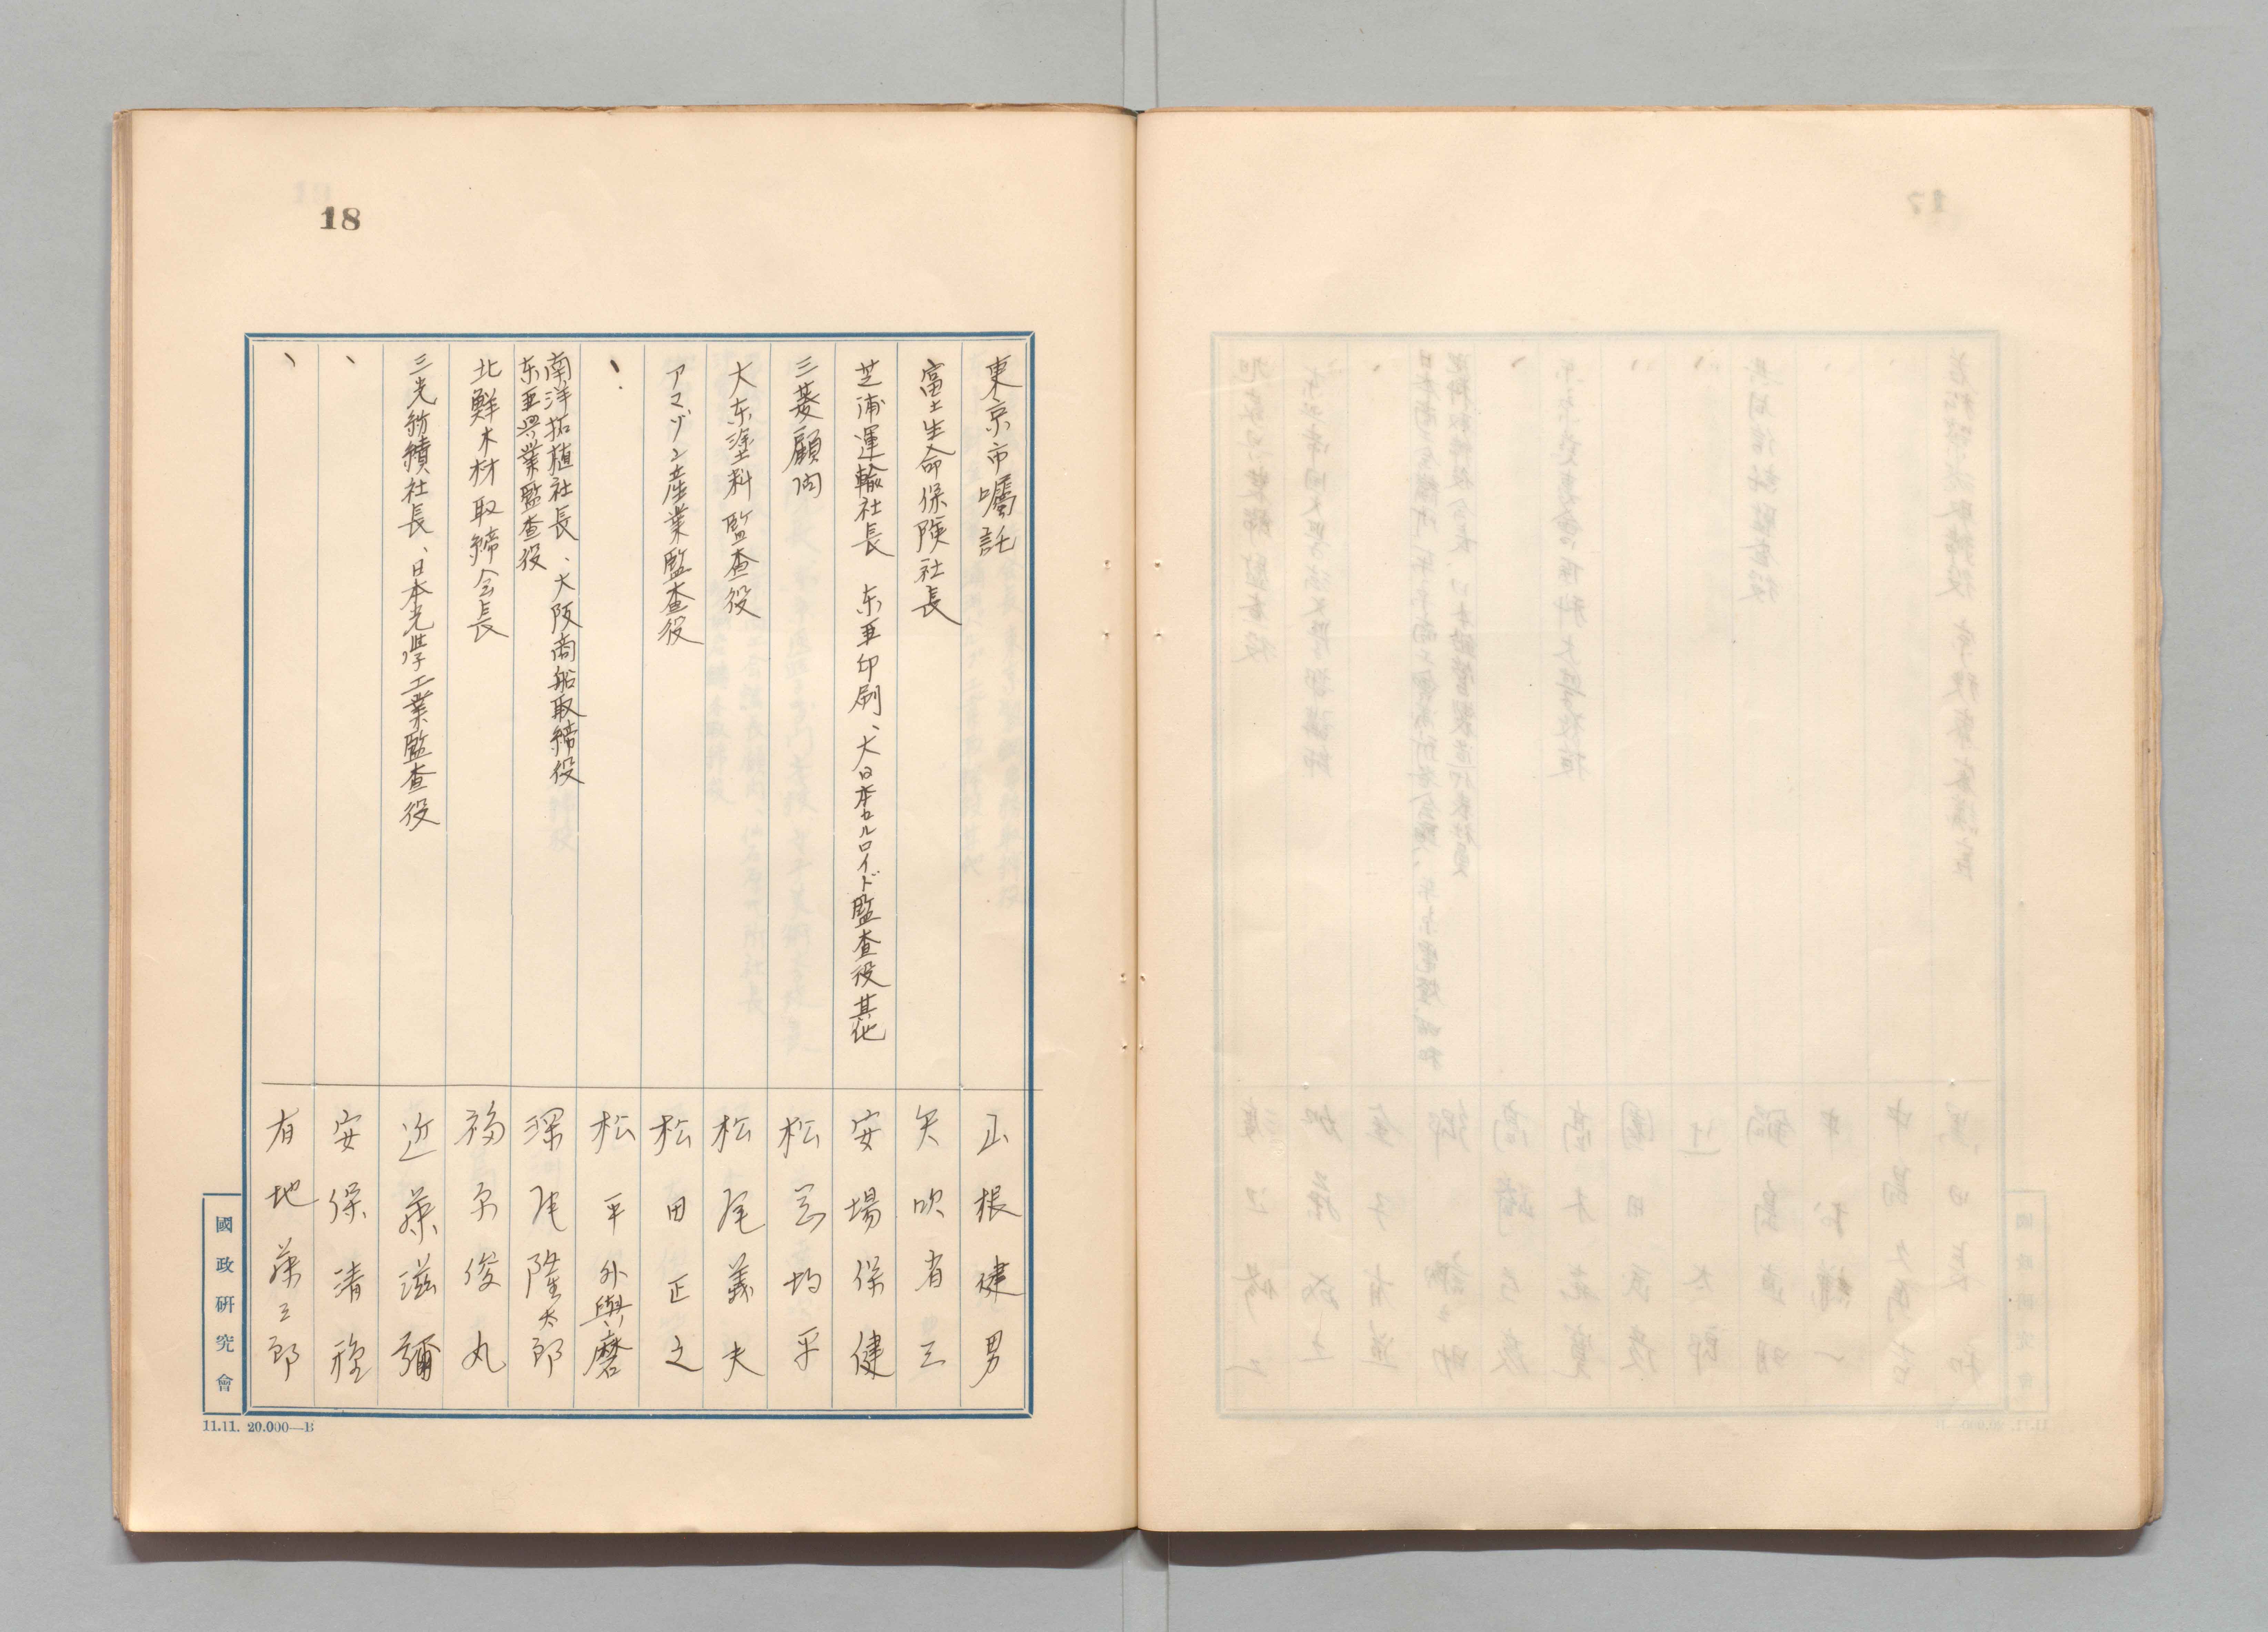 18
東京市嘱託 正根健男
富士生命保険社長 矢吹省三
芝浦運輸社長 东亜印刷、大日本セルロイド監査役其他 安場保健
三菱顧問 松岡均平
大东塗料監査役 松尾義夫
アマゾン産業監査役 松田正之
、 松平外與麿
南洋拓植社長、大阪商船取締役
东亜興業監査役 深尾隆太郎
北鮮木材取締会長 福原俊丸
三光紡績社長、日本光学工業監査役 近藤滋彌
、 安保清種
、 有地藤三郎
國政研究會
11.11. 20.000—B